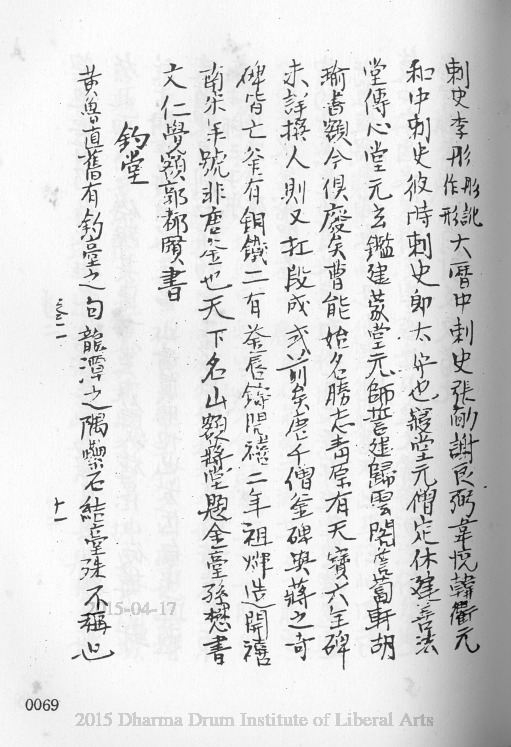 刺史李彤彤訛作形大曆中刺史張勔謝良弼韋悅韓衢元
和中刺史彼時刺史即太守也寢堂元僧定休建善法
堂傳心堂元玄鑑建蒙堂元師誓建歸雲閣薝蔔軒胡
瑜書額今俱廢矣曹能始名勝志青原有天寶六年碑
未詳撰人則又在段成式前矣唐千僧釜碑與蔣之奇
碑皆亡釜有銅鐵二有釜唇鐫開禧二年祖燁造開禧
南宋年號非唐釜也天下名山額蔣堂題金臺孫懋書
文仁覺額郭都賢書
釣臺
黃魯直舊有釣臺之句龍潭之隅壘石結臺殊不稱也
卷二 十一
0069
2015-04-17
2015 Dharma Drum Institute of Liberal Arts